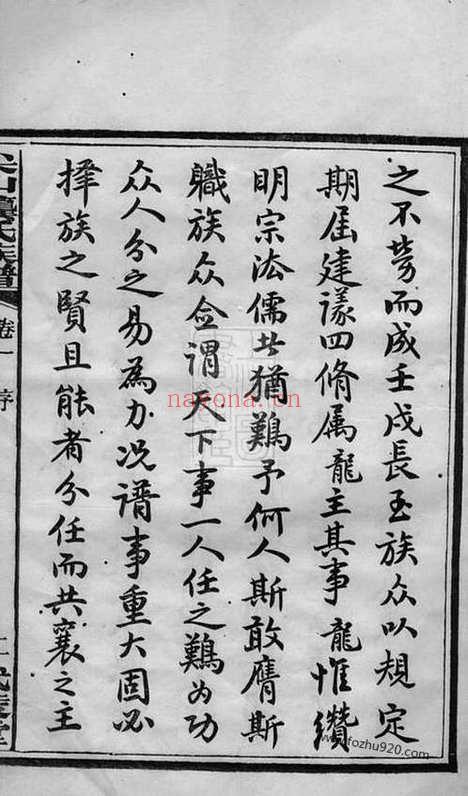 之不劳而成壬戌長至族众以規定
期屆建議四脩属龍主其事龍惟纘
明宗法儒者猶難予何人斯敢膺斯
職族众佥謂天下事一人任之難為功
众人分之易為力况谱事重大固必
擇族之賢且能者分任而共襄之主
氏族譜
卷一
序
nayona.cn
www.fozhu920.com